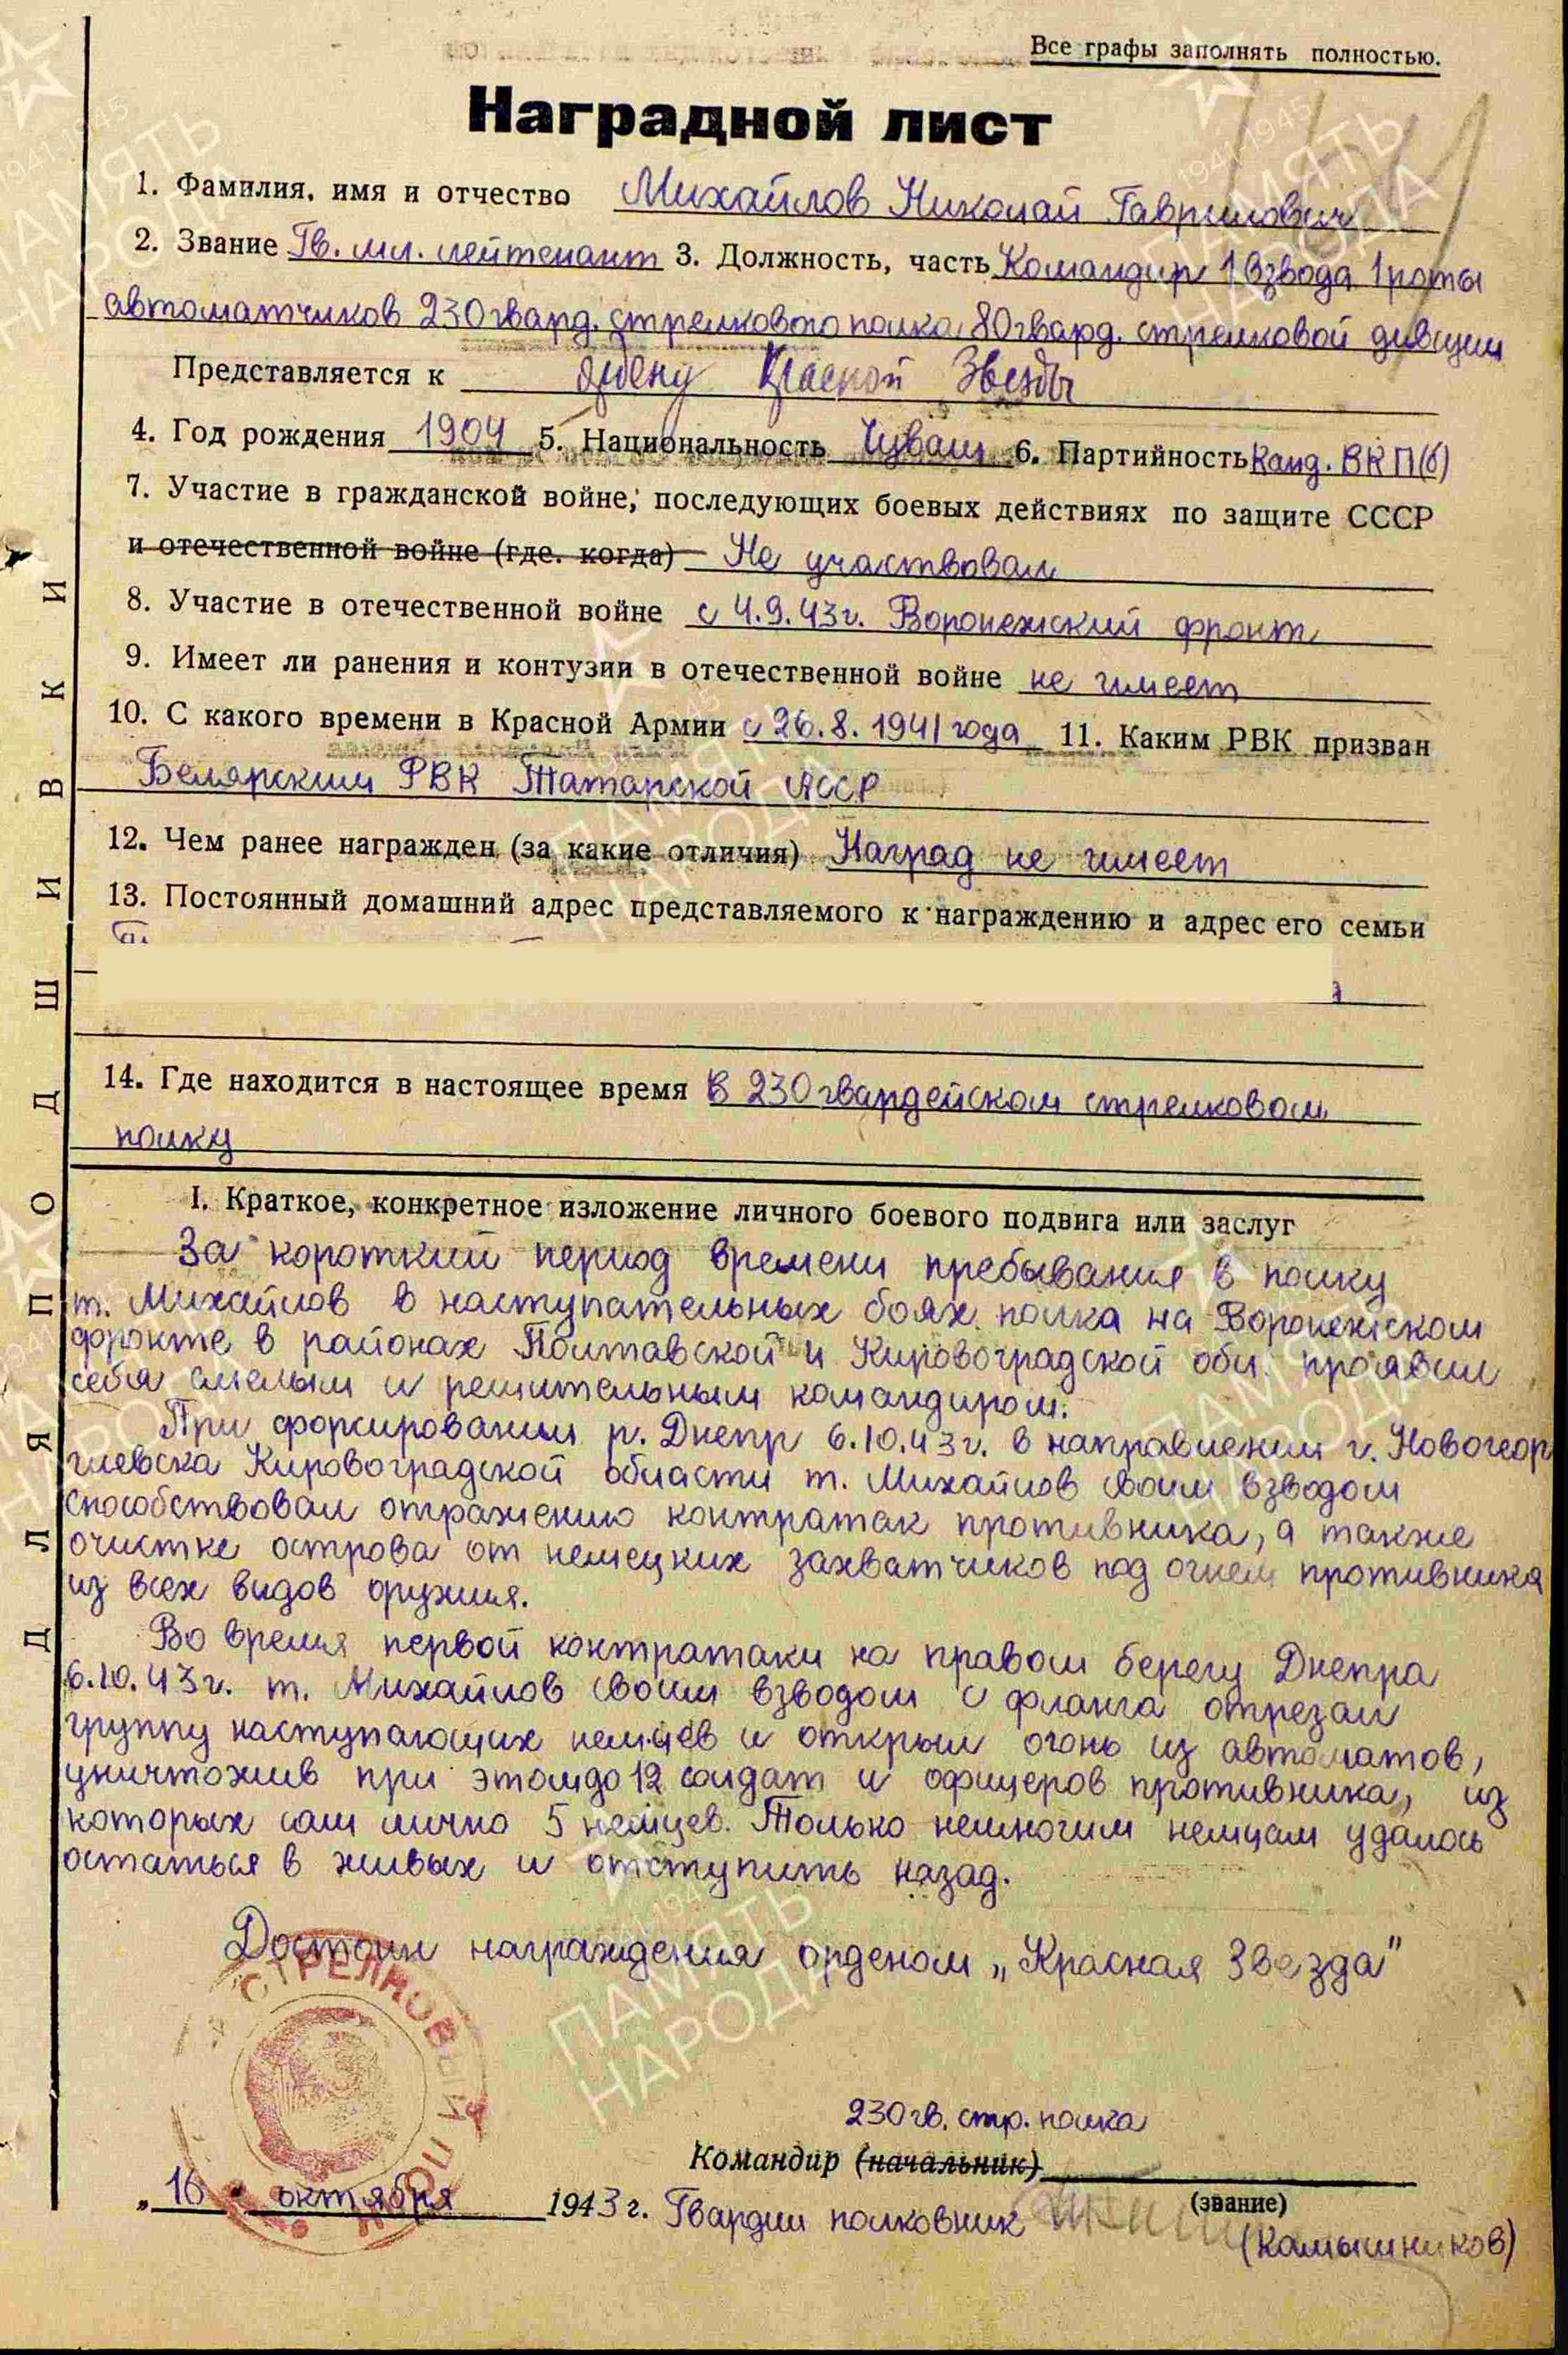 Все графы заполнять полностью.
Наградной лист
1. Фамилия, имя и отчество Михайлов Николай Гаврилович
2. Звание Гв. мл. лейтенант 3. Должность, часть Командир 1 взвода 1 роты
автоматчиков 230 гвард. стрелкового полка 80 гвард. стрелковой дивизии
Представляется к ордену Красной Звезды
4. Год рождения 1904 5. Национальность Чуваш 6. Партийность Канд. ВКП(б)
7. Участие в гражданской войне, последующих боевых действиях по защите СССР
и отечественной войне (где, когда) Не участвовал
8. Участие в отечественной войне с 4.9.43г. Воронежский фронт
9. Имеет ли ранения и контузии в отечественной войне не имеет
10. С какого времени в Красной Армии с 26.8.1941 года 11. Каким РВК призван
Белярским РВК Татарской АССР
12. Чем ранее награжден (за какие отличия) Наград не имеет
13. Постоянный домашний адрес представляемого к награждению и адрес его семьи
14. Где находится в настоящее время В 230 гвардейском стрелковом
полку
I. Краткое, конкретное изложение личного боевого подвига или заслуг
За короткий период времени пребывания в полку
т. Михайлов в наступательных боях полка на Воронежском
фронте в районах Полтавской и Кировоградской обл. проявил
себя смелым и решительным командиром.
При форсировании р. Днепр 6.10.43г. в направлении г. Новогеор
гиевска Кировоградской области т. Михайлов своим взводом
способствовал отражению контратак противника, а также
очистке острова от немецких захватчиков под огнем противника
из всех видов оружия.
Во время первой контратаки на правом берегу Днепра
6.10.43г. т. Михайлов своим взводом с фланга отрезал
группу наступающих немцев и открыл огонь из автоматов,
уничтожив при этом до 12 солдат и офицеров противника, из
которых сам лично 5 немцев. Только немногим немцам удалось
остаться в живых и отступить назад.
Достоин награждения орденом „Красная Звезда"
СТРЕЛКОВЫЙ ПОЛК
230 гв. стр. полка
Командир (начальник)
(звание)
„16" октября 1943 г. Гвардии полковник (Камышников)
ДЛЯ ПОДШИВКИ
1941-1945
ПАМЯТЬ
НАРОДА